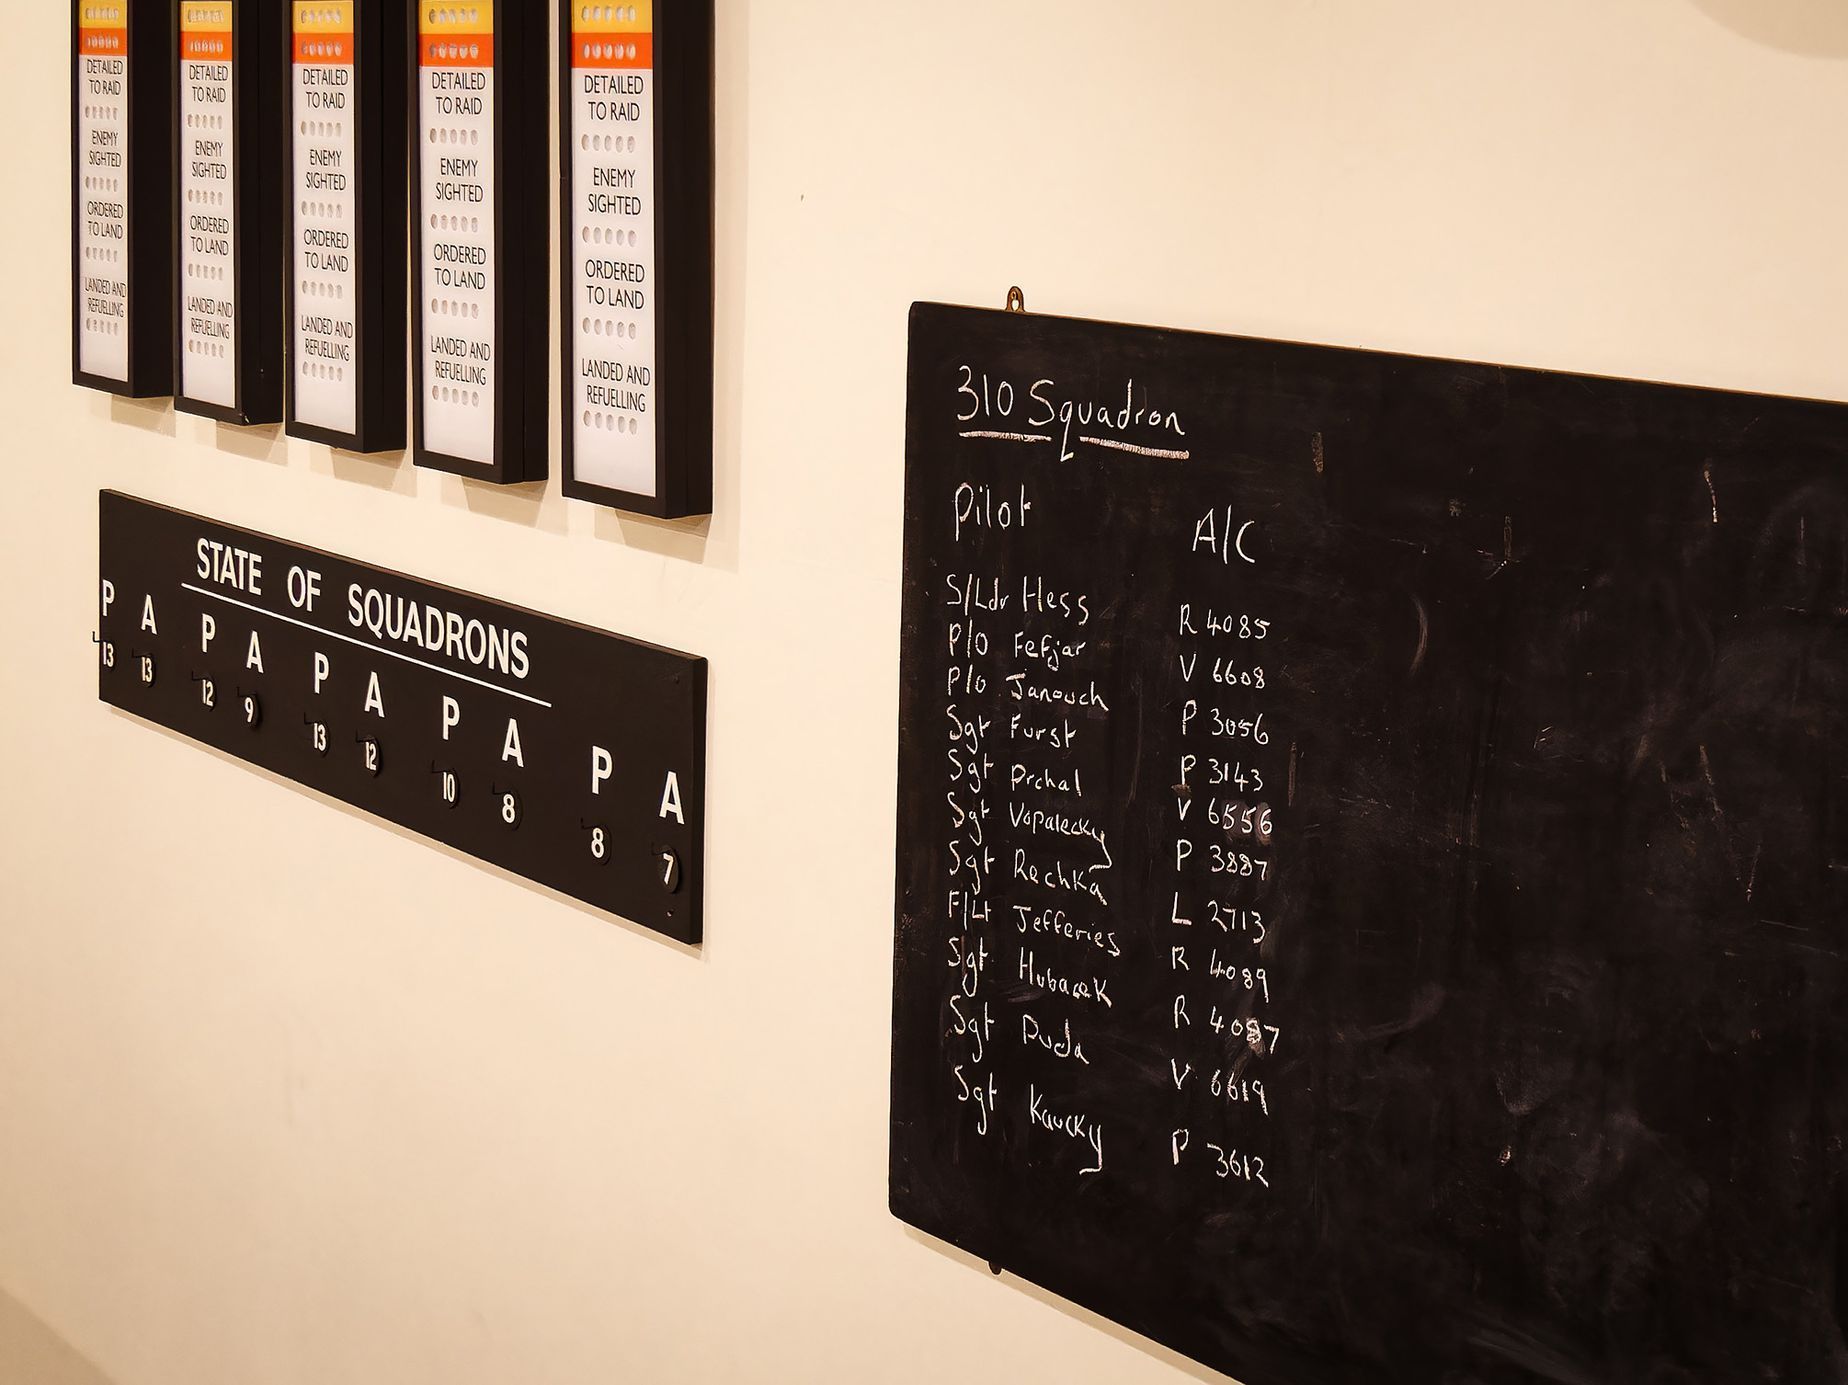 DETAILED
TO RAID
ENEMY
SIGHTED
ORDERED
TO LAND
LANDED AND
REFUELLING
DETAILED
TO RAID
ENEMY
SIGHTED
ORDERED
TO LAND
LANDED AND
REFUELLING
DETAILED
TO RAID
ENEMY
SIGHTED
ORDERED
TO LAND
LANDED AND
REFUELLING
DETAILED
TO RAID
ENEMY
SIGHTED
ORDERED
TO LAND
LANDED AND
REFUELLING
DETAILED
TO RAID
ENEMY
SIGHTED
ORDERED
TO LAND
LANDED AND
REFUELLING
STATE OF SQUADRONS
P A P A P A P A P A
13 13 12 9 13 12 10 8 8 7
310 Squadron
Pilot A/C
S/Ldr Hess R 4085
P/O Fefjar V 6608
P/O Janouch P 3056
Sgt Furst P 3143
Sgt Prchal V 6556
Sgt Vopalecky P 3887
Sgt Rechka L 2713
F/Lt Jefferies R 4089
Sgt Hubacek R 4087
Sgt Duda V 6619
Sgt Kaucky P 3612